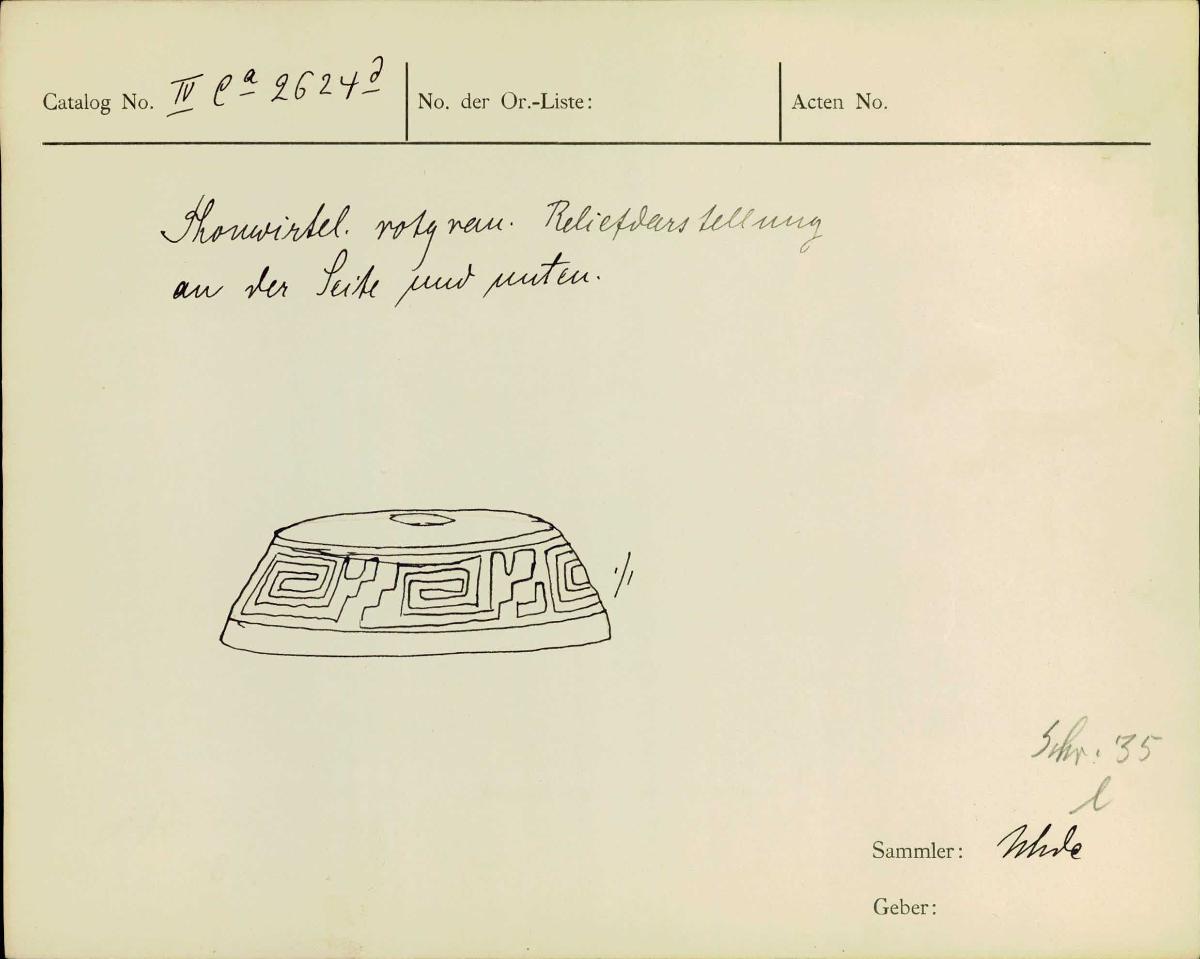 Catalog No. IV Ca 2624d No. der Or.-Liste: Acten No.
Thonwirtel. rotgrau. Reliefdarstellung
an der Seite und unten.
1/1
Schr. 35
l
Sammler: Uhde
Geber: